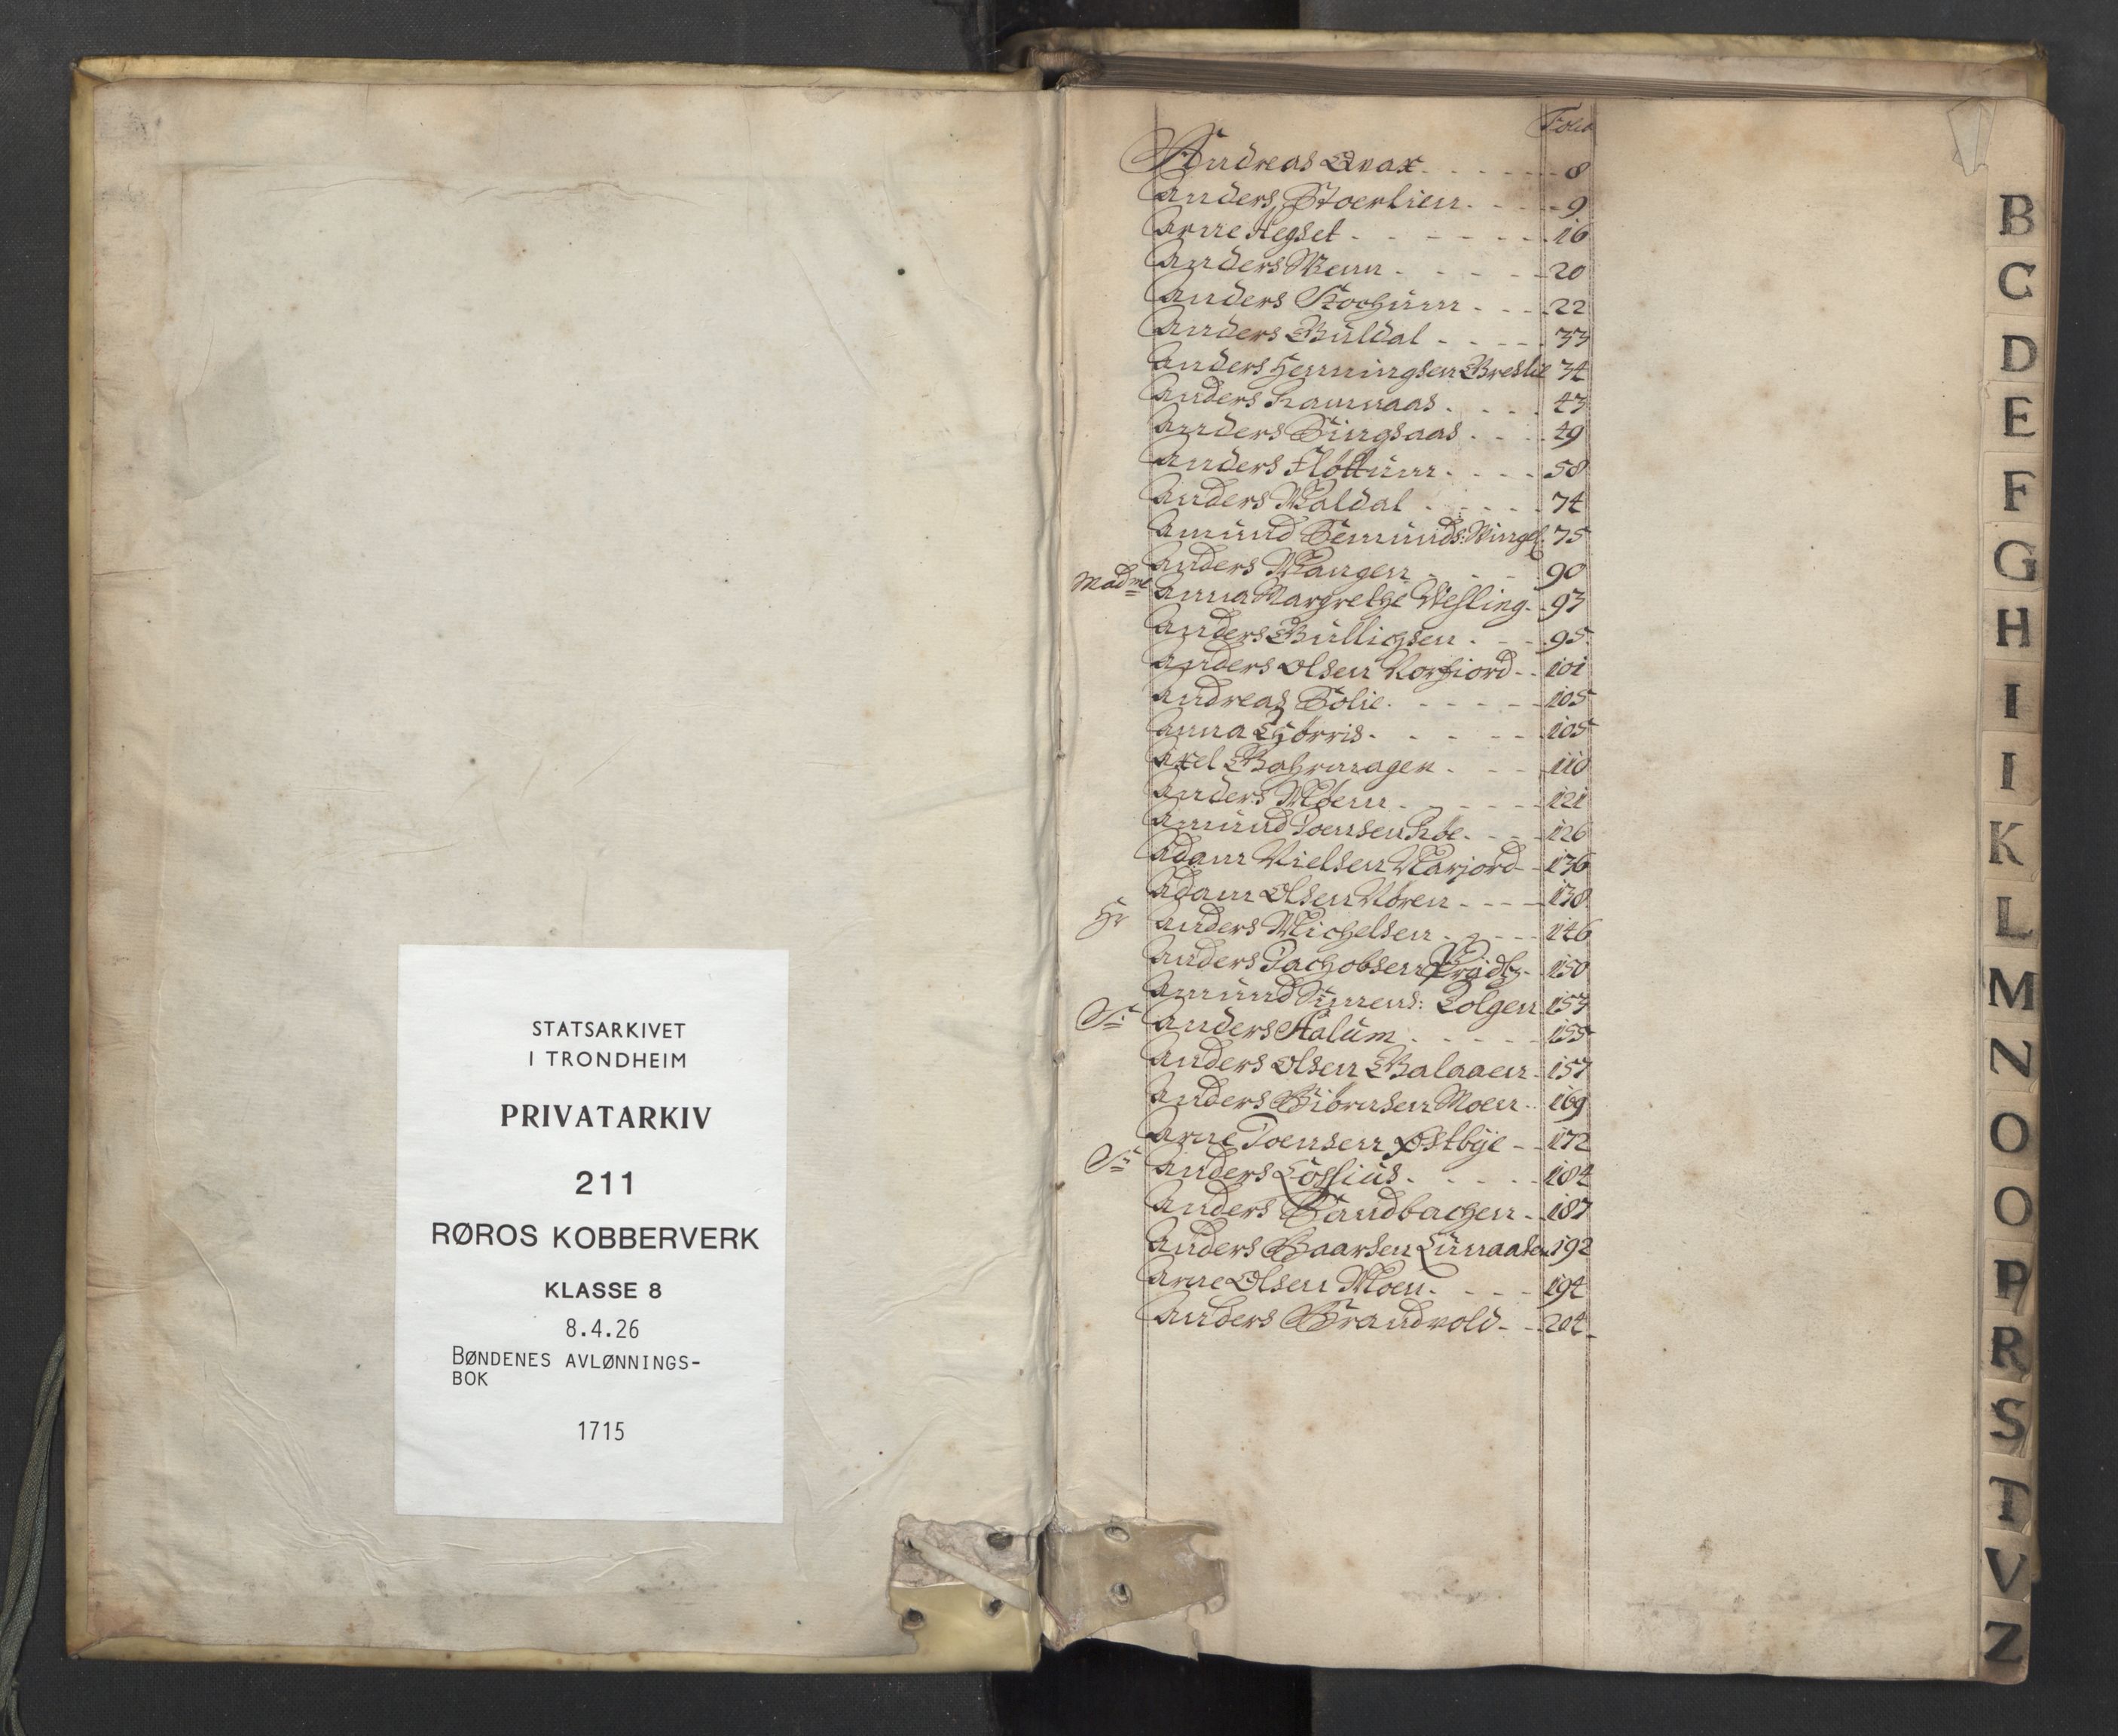 STATSARKIVET
I TRONDHEIM
PRIVATARKIV
211
RØROS KOBBERVERK
KLASSE 8
8.4.26
BØNDENES AVLØNNINGS-
BOK
1715
Folio
Andreas Qvax 8
Anders Stoerlien 9
Arne Hegset 16
Anders Wenn 20
Anders Stochum 22
Anders Buldal 33
Anders Henningsen Breslie 34
Anders Ramnaas 43
Anders Singsaas 49
Anders Flöttum 58
Anders Waldal 74
Amund Semunds: Wingel 75
Anders Wangen 90
Madme Anna Margrethe Wesling 93
Anders Bullichsen 95
Anders Olsen Norfiord 101
Andreas Solie 105
Anna Görris 105
Axel Bahrmagen 110
Anders Möen 121
Amund Joensen Röe 126
Adam Nielsen Narjord 136
Adam Olsen Nören 138
Hr Anders Michelsen 146
Anders Jachobsen 150
Amund Simens: Tolgen 153
Sr Anders Aalum 155
Anders Olsen Balaaen 157
Anders Biörnsen Moen 169
Arne Joensen Østbÿe 172
Sr Anders Lossius 184
Anders Sandbachen 187
Anders Baarsen 192
Arne Olsen Moen 194
Anders Brandvold 204
B
C
D
E
F
G
H
I
I
K
L
M
N
O
O
P
R
S
T
V
Z